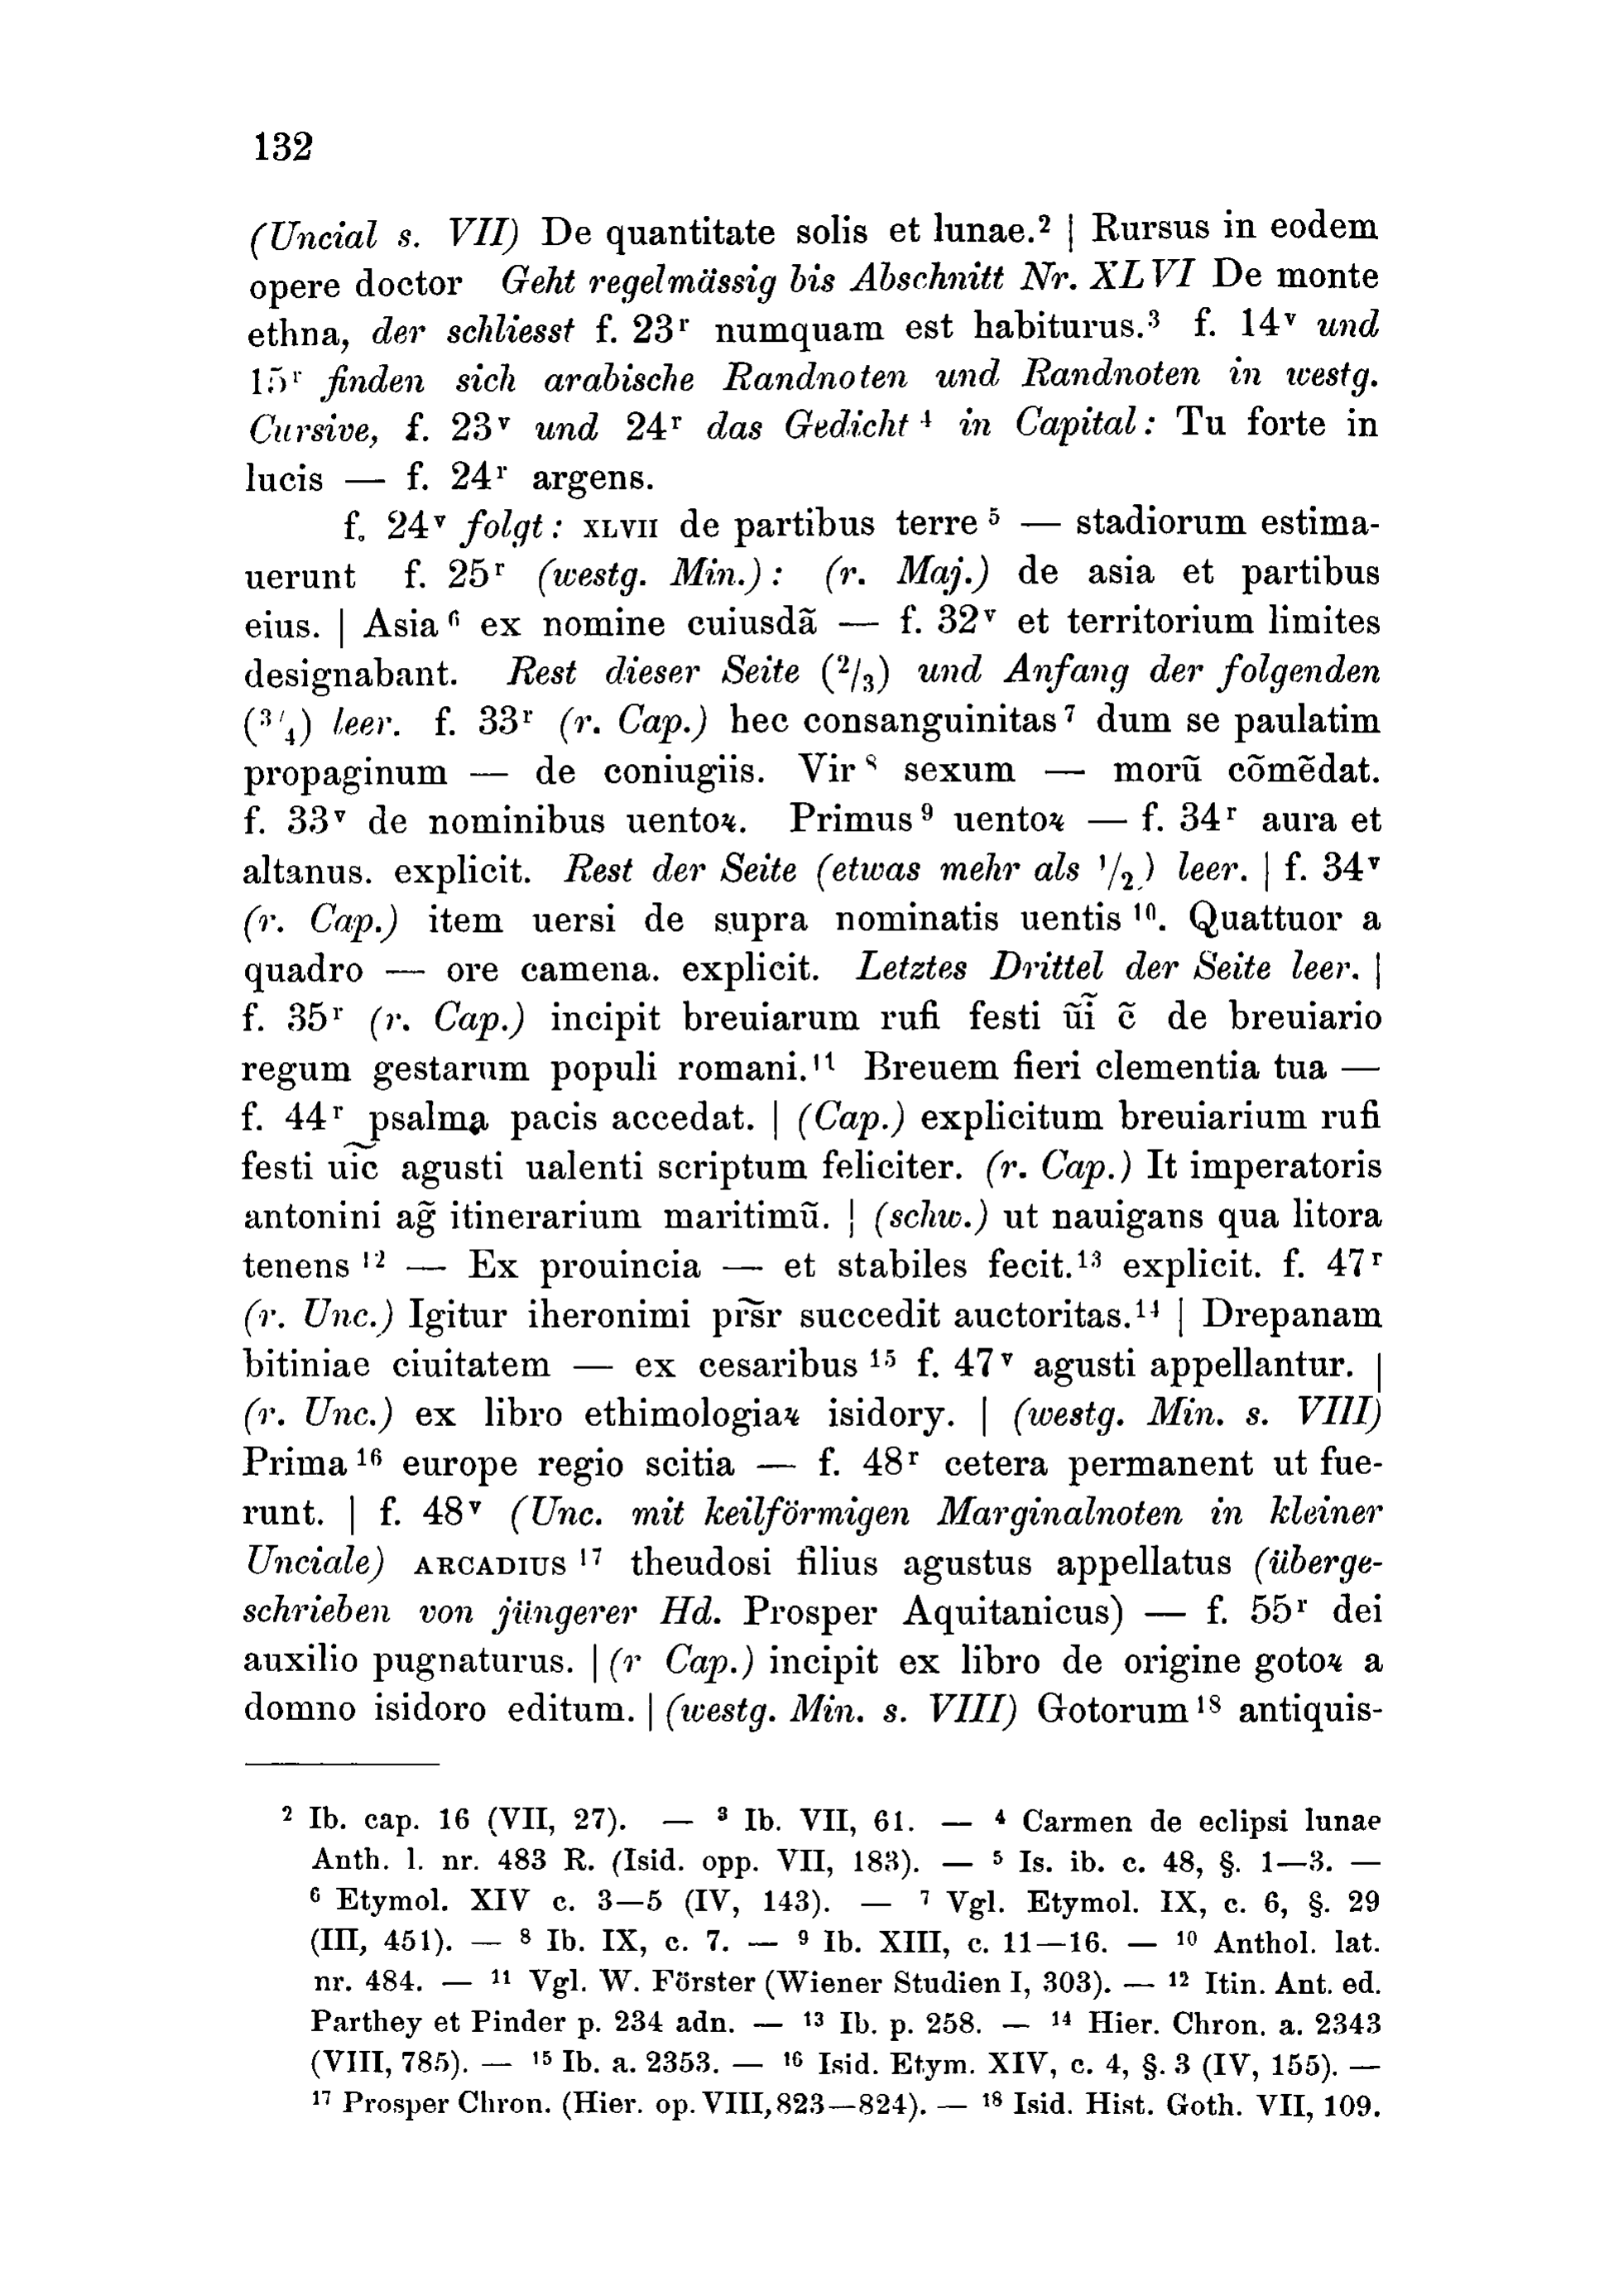 132
(Uncial s. VII) De quantitate solis et lunae.² | Rursus in eodem
opere doctor Geht regelmässig bis Abschnitt Nr. XLVI De monte
ethna, der schliesst f. 23ʳ numquam est habiturus.³ f. 14ᵛ und
15ʳ finden sich arabische Randnoten und Randnoten in westg.
Cursive, f. 23ᵛ und 24ʳ das Gedicht⁴ in Capital: Tu forte in
lucis — f. 24ʳ argens.
f. 24ᵛ folgt: XLVII de partibus terre⁵ — stadiorum estima-
uerunt f. 25ʳ (westg. Min.): (r. Maj.) de asia et partibus
eius. | Asia⁶ ex nomine cuiusdã — f. 32ᵛ et territorium limites
designabant. Rest dieser Seite (²/₃) und Anfang der folgenden
(³/₄) leer. f. 33ʳ (r. Cap.) hec consanguinitas⁷ dum se paulatim
propaginum — de coniugiis. Vir⁸ sexum — morũ cõmẽdat.
f. 33ᵛ de nominibus uentoꝝ. Primus⁹ uentoꝝ — f. 34ʳ aura et
altanus. explicit. Rest der Seite (etwas mehr als ¹/₂) leer. | f. 34ᵛ
(r. Cap.) item uersi de supra nominatis uentis¹⁰. Quattuor a
quadro — ore camena. explicit. Letztes Drittel der Seite leer. |
f. 35ʳ (r. Cap.) incipit breuiarum rufi festi ũĩ c̃ de breuiario
regum gestarum populi romani.¹¹ Breuem fieri clementia tua —
f. 44ʳ psalma pacis accedat. | (Cap.) explicitum breuiarium rufi
festi uĩc agusti ualenti scriptum feliciter. (r. Cap.) It imperatoris
antonini ag̃ itinerarium maritimũ. | (schw.) ut nauigans qua litora
tenens¹² — Ex prouincia — et stabiles fecit.¹³ explicit. f. 47ʳ
(r. Unc.) Igitur iheronimi pr̃sr succedit auctoritas.¹⁴ | Drepanam
bitiniae ciuitatem — ex cesaribus¹⁵ f. 47ᵛ agusti appellantur. |
(r. Unc.) ex libro ethimologiaꝝ isidory. | (westg. Min. s. VIII)
Prima¹⁶ europe regio scitia — f. 48ʳ cetera permanent ut fue-
runt. | f. 48ᵛ (Unc. mit keilförmigen Marginalnoten in kleiner
Unciale) ARCADIUS¹⁷ theudosi filius agustus appellatus (überge-
schrieben von jüngerer Hd. Prosper Aquitanicus) — f. 55ʳ dei
auxilio pugnaturus. | (r Cap.) incipit ex libro de origine gotoꝝ a
domno isidoro editum. | (westg. Min. s. VIII) Gotorum¹⁸ antiquis-
² Ib. cap. 16 (VII, 27). — ³ Ib. VII, 61. — ⁴ Carmen de eclipsi lunae
Anth. l. nr. 483 R. (Isid. opp. VII, 183). — ⁵ Is. ib. c. 48, §. 1—3. —
⁶ Etymol. XIV c. 3—5 (IV, 143). — ⁷ Vgl. Etymol. IX, c. 6, §. 29
(III, 451). — ⁸ Ib. IX, c. 7. — ⁹ Ib. XIII, c. 11—16. — ¹⁰ Anthol. lat.
nr. 484. — ¹¹ Vgl. W. Förster (Wiener Studien I, 303). — ¹² Itin. Ant. ed.
Parthey et Pinder p. 234 adn. — ¹³ Ib. p. 258. — ¹⁴ Hier. Chron. a. 2343
(VIII, 785). — ¹⁵ Ib. a. 2353. — ¹⁶ Isid. Etym. XIV, c. 4, §. 3 (IV, 155). —
¹⁷ Prosper Chron. (Hier. op. VIII, 823—824). — ¹⁸ Isid. Hist. Goth. VII, 109.